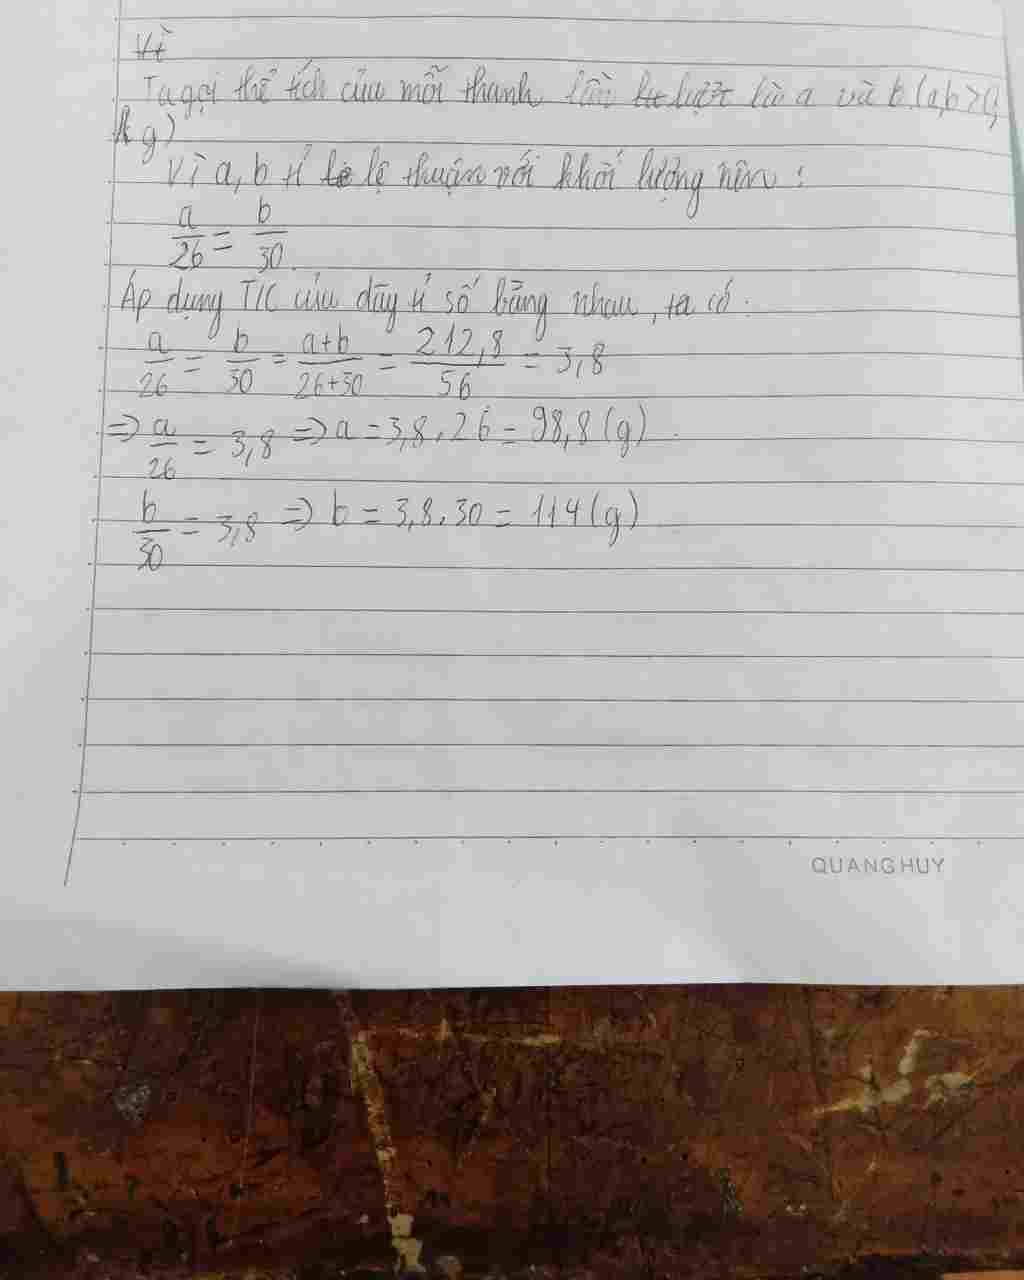 Vì
Ta gọi thể tích của mỗi thanh lần lư lượt là a và b (a,b > 0,
g)
Vì a, b tỉ lệ lệ thuận với khối lượng nên :
a/26 = b/30
Áp dụng T/C của dãy tỉ số bằng nhau, ta có :
a/26 = b/30 = a+b/26+30 = 212,8/56 = 3,8
=> a/26 = 3,8 => a = 3,8 . 26 = 98,8 (g)
b/30 = 3,8 => b = 3,8 . 30 = 114 (g)
QUANG HUY